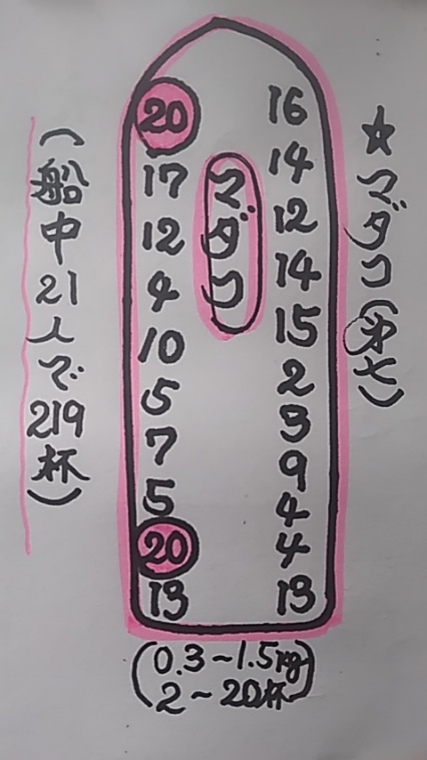 ☆マダコ(第七)
16
14
12
14
15
2
3
9
4
4
13
マダコ
20
17
12
4
10
5
7
5
20
13
(0.3~1.5kg
2~20杯)
(船中21人で219杯)